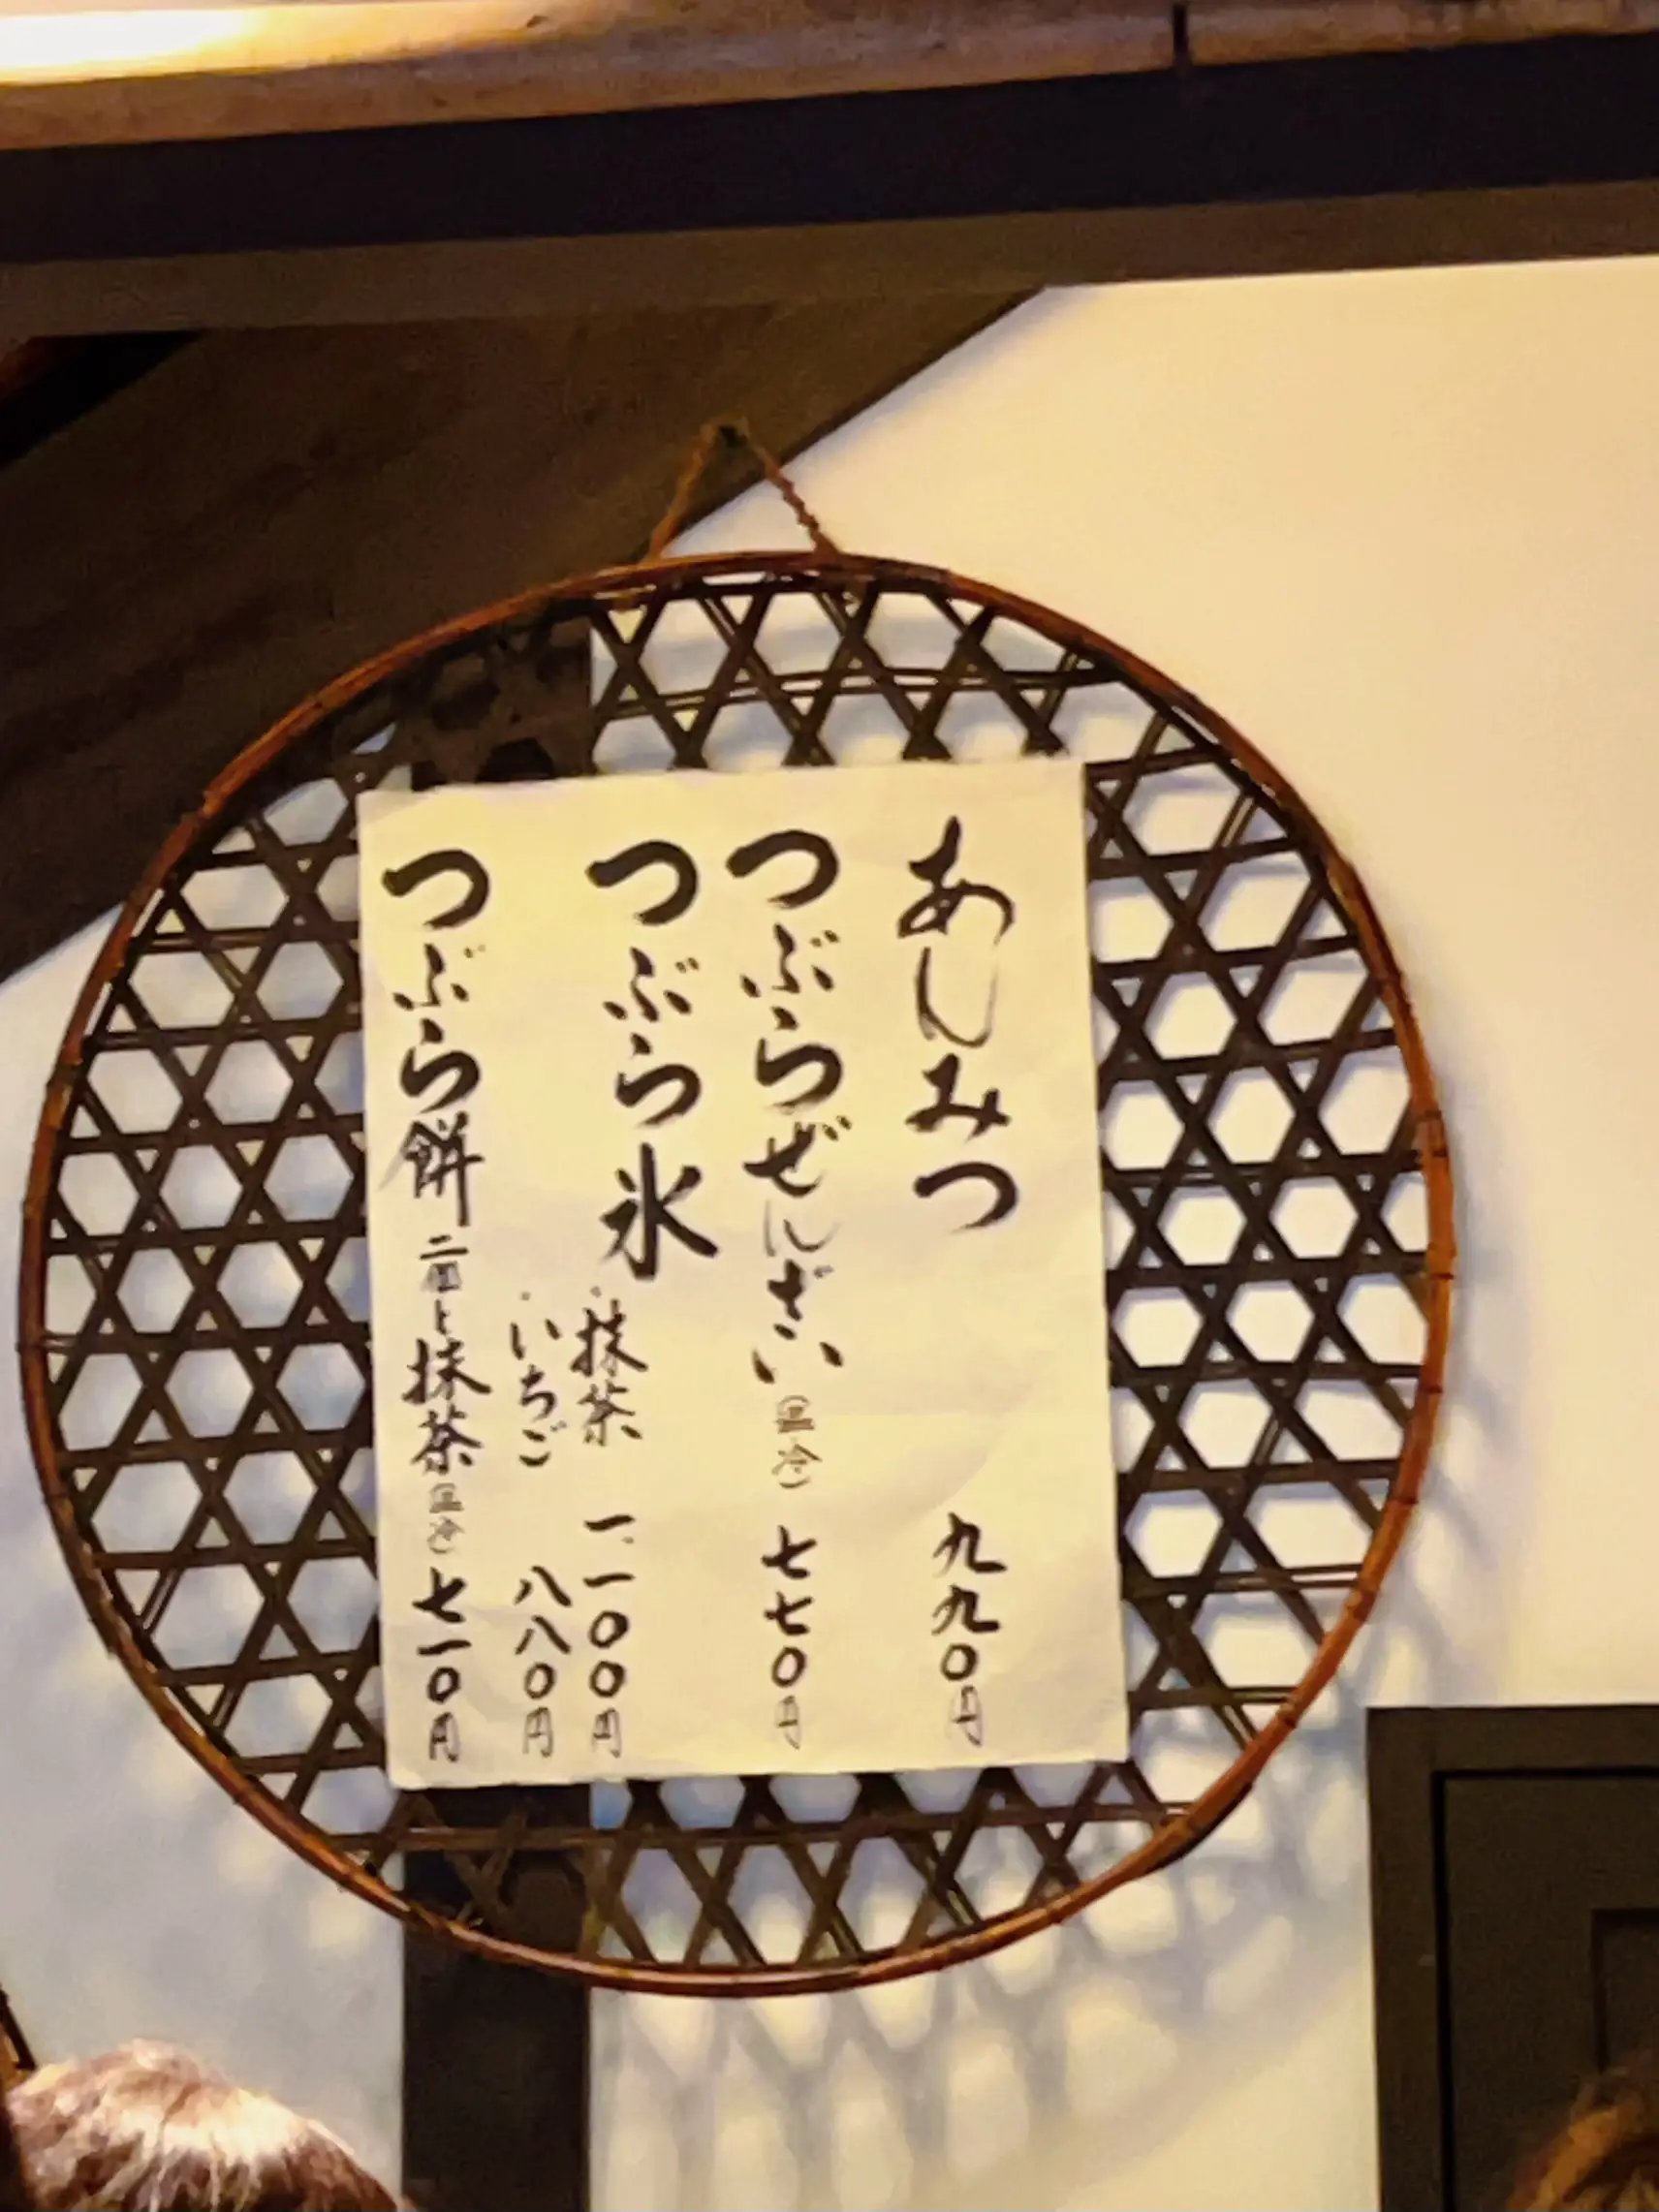 あんみつ 九九〇円
つぶらぜんざい(温・冷) 七七〇円
つぶら氷・抹茶 一、一〇〇円
・いちご 八八〇円
つぶら餅二個と抹茶(温・冷) 七一〇円